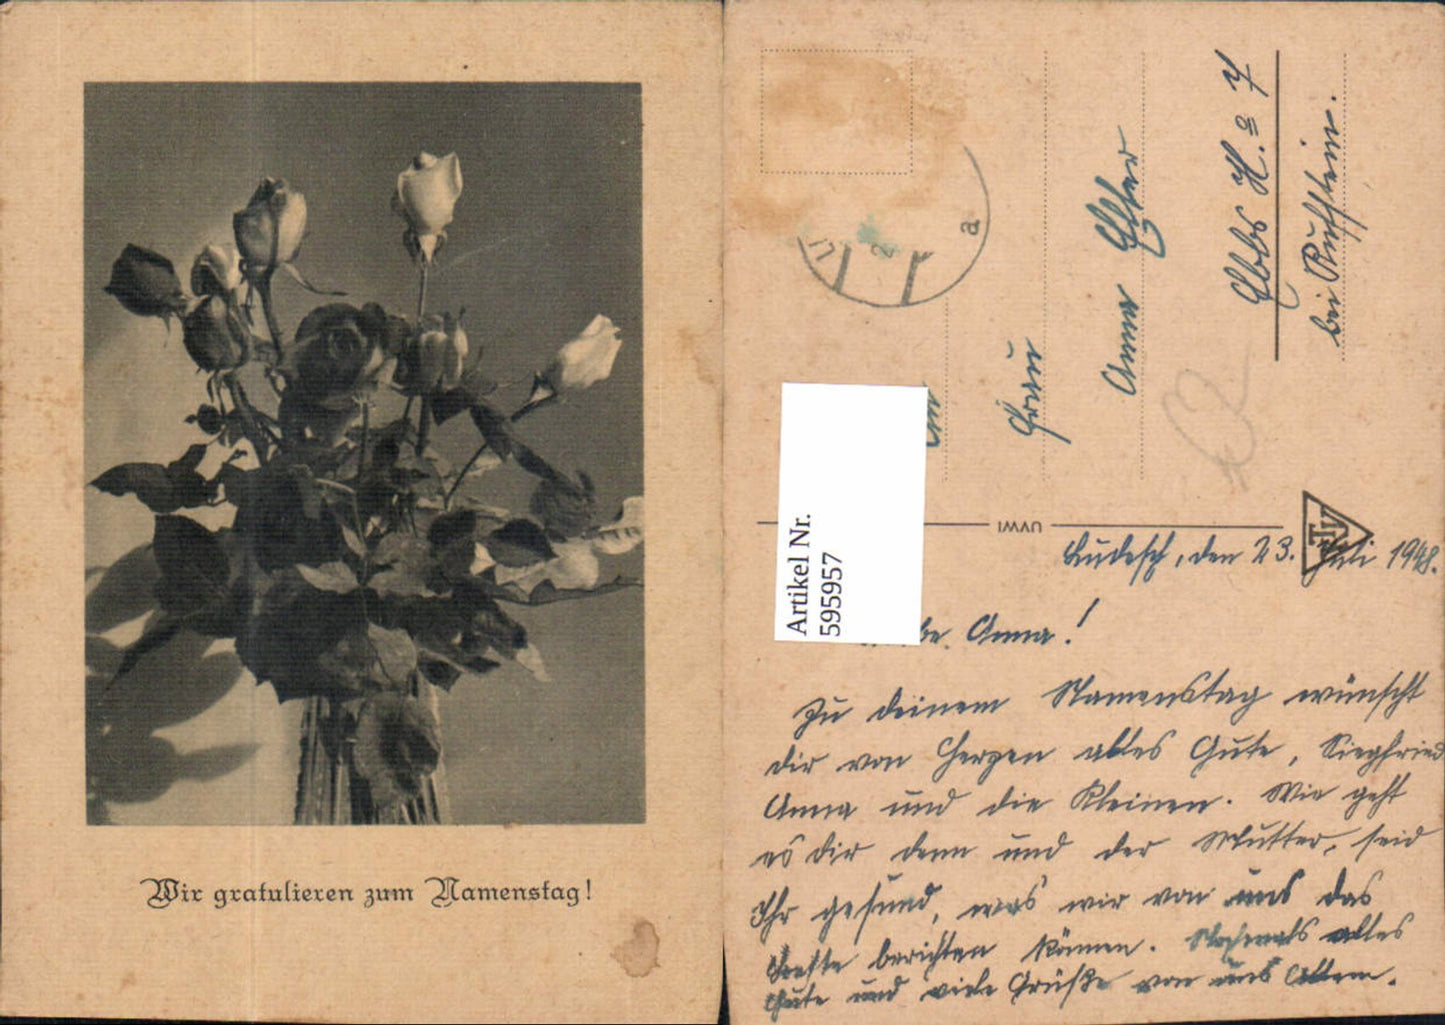 Wir gratulieren zum Namenstag!
a
An
Frau
Anna Egger
Ebbs H. No 7
bei Kufstein.
UVWI
Artikel Nr.
595957
Ludesch, den 23. Juli 1948.
be Anna!
Zu deinem Namenstag wünscht
dir von Herzen alles Gute, Siegfried
Anna und die Kleinen. Wie geht
es dir denn und der Mutter, seid
Ihr gesund, was wir von uns das
Beste berichten können. Nochmals alles
Gute und viele Grüße von uns Allen.